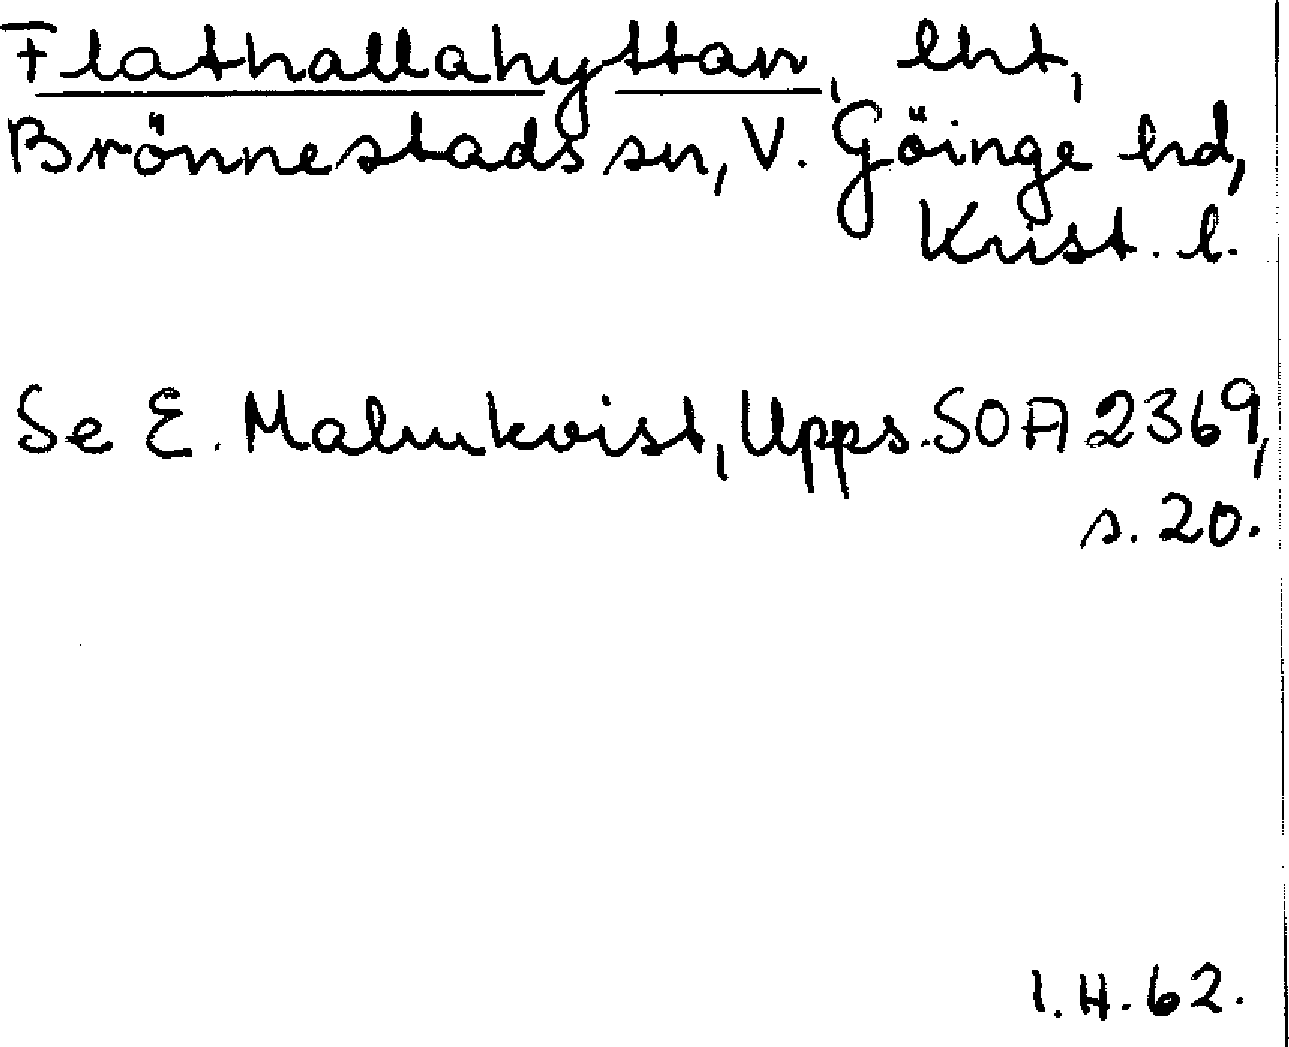 Flathallahyttan, lht,
Brönnestads sn, V. Göinge hd,
Krist. l.
Se E. Malmkvist, Upps. SOA 2369,
s. 20.
I.H. 62.